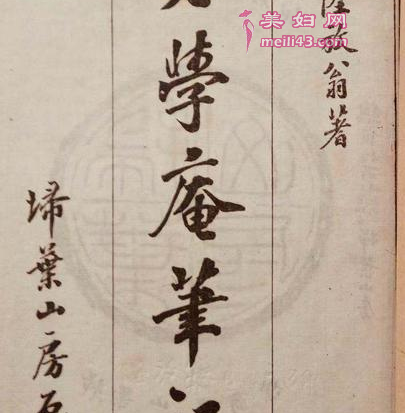 美妇网
www.meili43.com
陸放翁著
學庵筆
埽葉山房